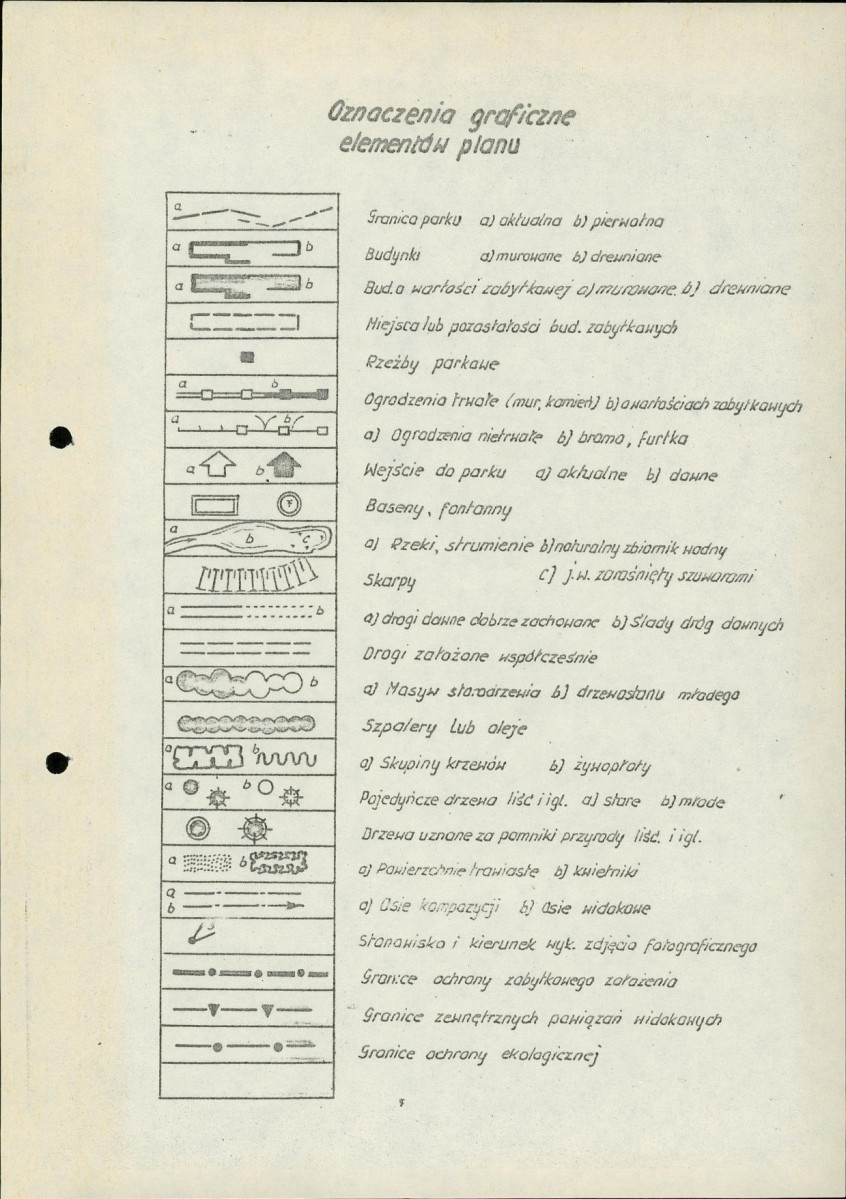 Oznaczenia graficzne
elementów planu
a
Granica parku a) aktualna b) pierwotna
a b
Budynki a) murowane b) drewniane
a b
Bud. o wartości zabytkowej a) murowane b) drewniane
Miejsca lub pozostałości bud. zabytkowych
Rzeźby parkowe
a b
Ogrodzenia trwałe (mur, kamień) b) o wartościach zabytkowych
a b
a) Ogrodzenia nietrwałe b) brama, furtka
a b
Wejście do parku a) aktualne b) dawne
F
Baseny, fontanny
a b c
a) Rzeki, strumienie b) naturalny zbiornik wodny
Skarpy c) j.w. zarośnięty szuwarami
a b
a) drogi dawne dobrze zachowane b) Ślady dróg dawnych
Drogi założone współcześnie
a b
a) Masyw starodrzewia b) drzewostanu młodego
Szpalery lub aleje
a b
a) Skupiny krzewów b) żywopłoty
a b
Pojedyńcze drzewa liść i igl. a) stare b) młode
Drzewa uznane za pomniki przyrody liść. i igl.
a b
a) Powierzchnie trawiaste b) kwietniki
a
b
a) Osie kompozycji b) Osie widokowe
Stanowiska i kierunek wyk. zdjęcia fotograficznego
Granice ochrony zabytkowego założenia
Granice zewnętrznych powiązań widokowych
Granice ochrony ekologicznej